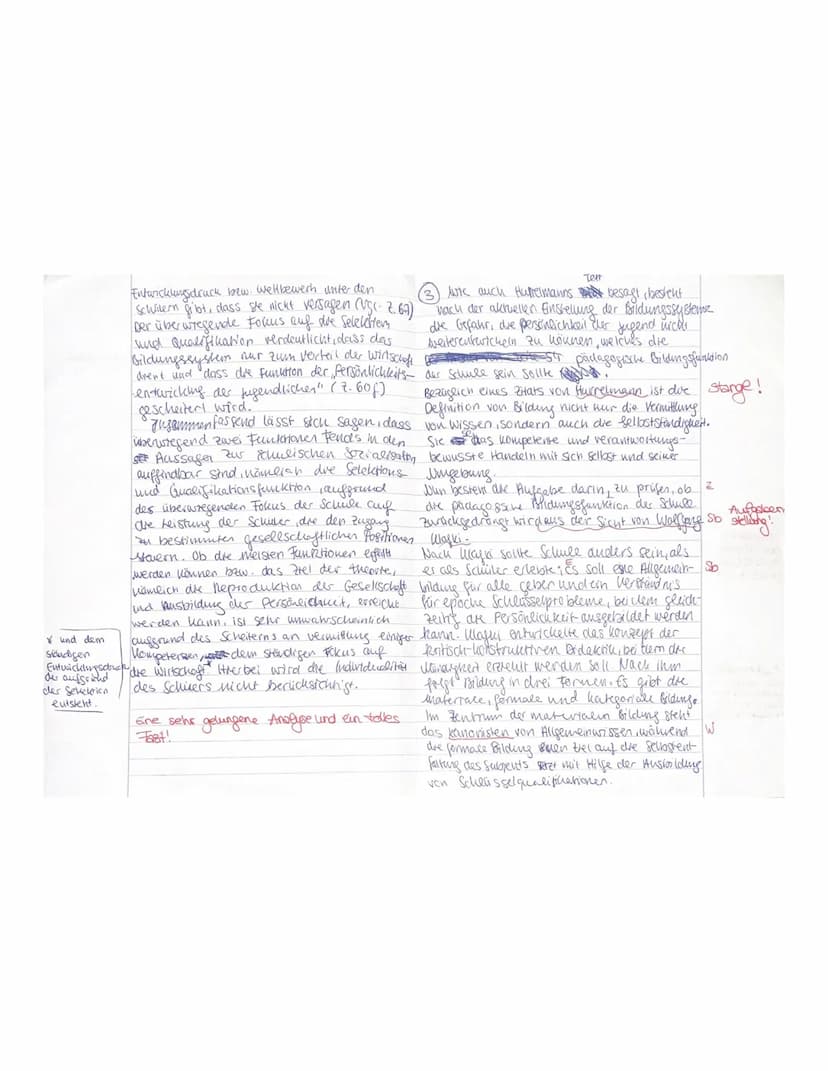 Entwicklungsdruck bzw. Wettbewerb unter den
Schülern gibt, dass sie nicht versagen (Vgl. Z. 69)
Der überwiegende Fokus auf die Selektion
und Qualifikation verdeutlicht, dass das
Bildungssystem nur zum Vorteil der Wirtschaft
dient und dass die Funktion der „Persönlichkeits-
entwicklung der Jugendlichen" (Z. 60f)
gescheitert wird.
Zusammenfassend lässt sich sagen, dass
überwiegend zwei Funktionen Fends in den
Aussagen zur schulischen Sozialisation
auffindbar sind, nämlich die Selektions
und Qualifikationsfunktion, aufgrund
des überwiegenden Fokus der Schule auf
die Leistung der Schüler, die den Zugang
zu bestimmten gesellschaftlichen Positionen
steuern. Ob die meisten Funktionen erfüllt
werden können bzw. das Ziel der Theorie,
nämlich die Reproduktion der Gesellschaft
und Ausbildung der Persönlichkeit, erreicht
werden kann, ist sehr unwahrscheinlich
aufgrund des Scheiterns an Vermittlung einiger
Kompetenzen, dem ständigen Fokus auf
die Wirtschaft Hierbei wird die Individualität
des Schülers nicht berücksichtigt.
und dem
ständigen
Entwicklungsdruck
der aufgrund
der Selektion
entsteht.
Eine sehr gelungene Analyse und ein tolles
Fazit!
Text
3 Wie auch Hurrelmanns besagt, besteht
nach der aktuellen Einstellung der Bildungssysteme
die Gefahr, die Persönlichkeit der Jugend nicht
weiterentwickeln zu können, welches die
pädagogische Bildungsfunktion
der Schule sein sollte
Bezüglich eines Zitats von Hurrelmann ist die Stange!
Definition von Bildung nicht nur die Vermittlung
von Wissen, sondern auch die Selbstständigkeit.
Sie das kompetente und verantwortungs-
bewusste Handeln mit sich selbst und seiner
Umgebung.
Nun besteht die Aufgabe darin, zu prüfen, ob Z
die pädagogische Bildungsfunktion der Schule
zurückgedrängt wird aus der Sicht von Wolfgang Sb Aufgaben-
stellung!
Klafki.
Nach Klafki sollte Schule anders sein, als
er als Schüler erlebte, Es soll eine Allgemein- Sb
bildung für alle geben und ein Verständnis
für epoche Schlüsselprobleme, bei dem gleich-
zeitig die Persönlichkeit ausgebildet werden
kann. Klafki entwickelte das Konzept der
kritisch-konstruktiven Didaktik, bei dem die
Mündigkeit erzielt werden soll. Nach ihm
folgt Bildung in drei Formen. Es gibt die
materiale, formale und kategoriale Bildung.
Im Zentrum der materialen Bildung steht
das von Allgemeinwissen, während W
die formale Bildung Ziel auf die Selbstent-
faltung des Subjekts setzt mit Hilfe der Ausbildung
von Schlüsselqualifikationen.